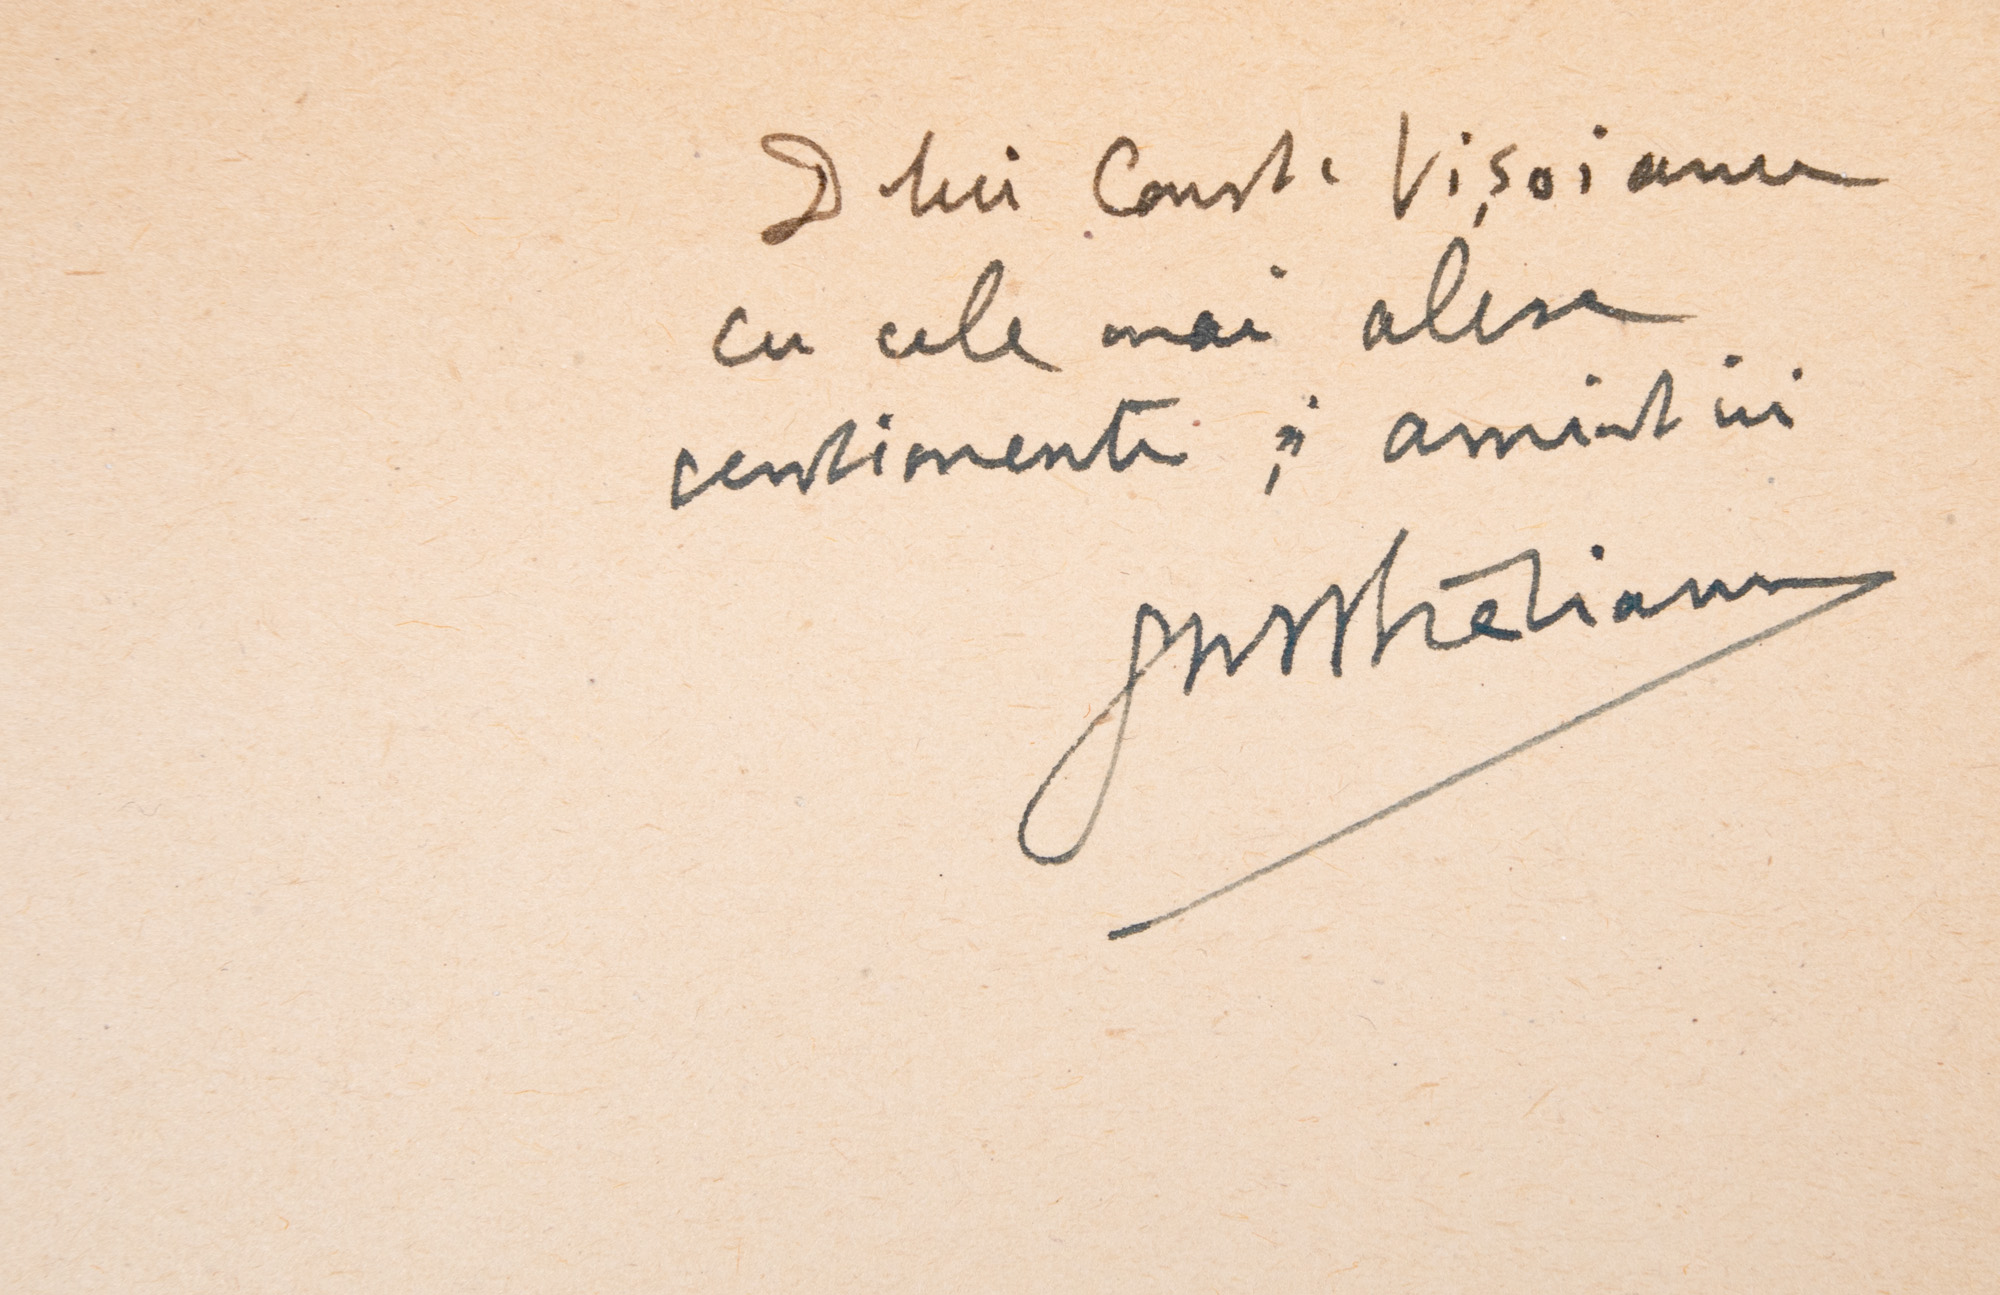 D lui Const. Vișoianu
cu cele mai alese
sentimente și amintiri